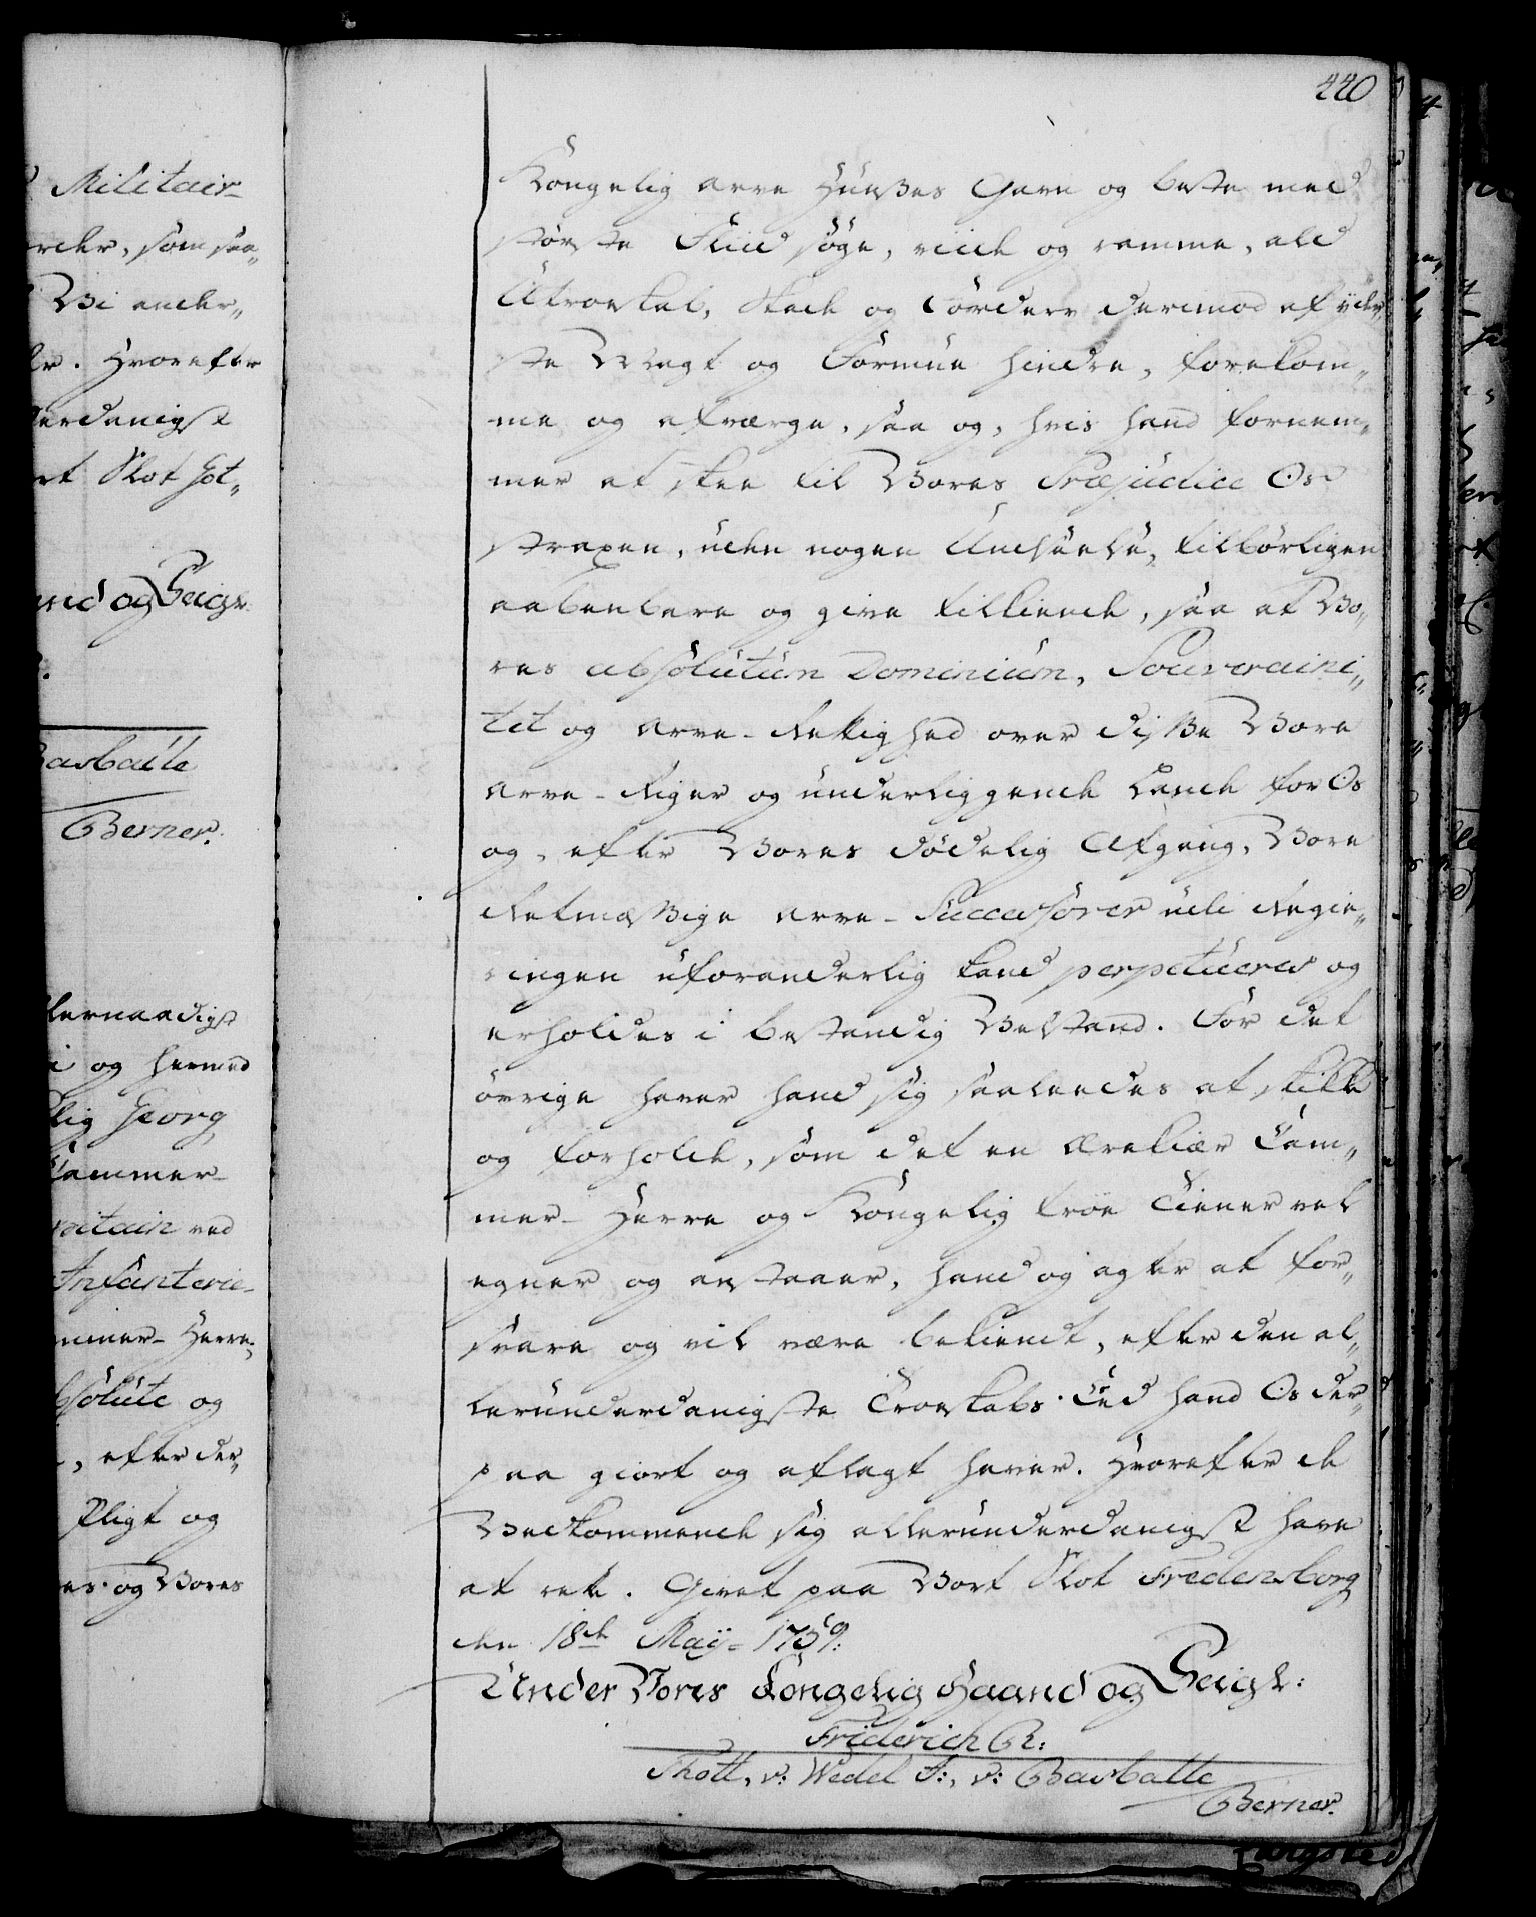 Militair-
ordr, som saa„
Vi andr„
. Hvorefter
erdanigst
rt Slot Got„
and og Seigl
Basballe
Berner.
llernaadigst
i og hermed
lig Georg
Cammer-
pitain ved
Infanterie-
mmer-Herre,
bsolute og
, efter der„
Pligt og
es og Vores
440
Kongelig Arve Huuses Gavn og beste med
største Fliid søge, viide og ramme, ald
Utroeskab, Skade og Fordærv derimod af yder„
ste Magt og Formue hindre, forekom„
me og afværge, saa og, hvis hand fornem„
mer at skee til Vores Præjudice Os
straxen, uden nogen Undseelse, tilbørligen
aabenbare og give tilkiende, saa at Vo„
res absolutum Dominium, Souveraini„
tet og Arve-Rettighed over disse Vore
Arve-Riger og underliggende Lande for Os
og, efter Vores dødelig Afgang, Vore
Retmæssige Arve-Successorer udi Regie„
ringen uforanderlig kand perpetueres og
erholdes i bestandig Velstand. For det
øvrige haver hand sig saaleedes at skikke
og forholde, som det en Ærekiær Cam„
mer-Herre og Kongelig troe Tiener vel
egner og anstaaer, hand og agter at for„
svare og vil være bekiendt, efter den al„
lerunderdanigste Troeskabs Eed hand Os der„
paa giort og aflagt haver. Hvorefter de
Vedkommende sig allerunderdanigst have
at rette. Givet paa Vort Slot Fredensborg
den 18de Maÿ 1759.
Under Vores Kongelig Haand og Seigl:
Friderich R:
Thott, v: Wedel F:, v: Basballe
Berner.